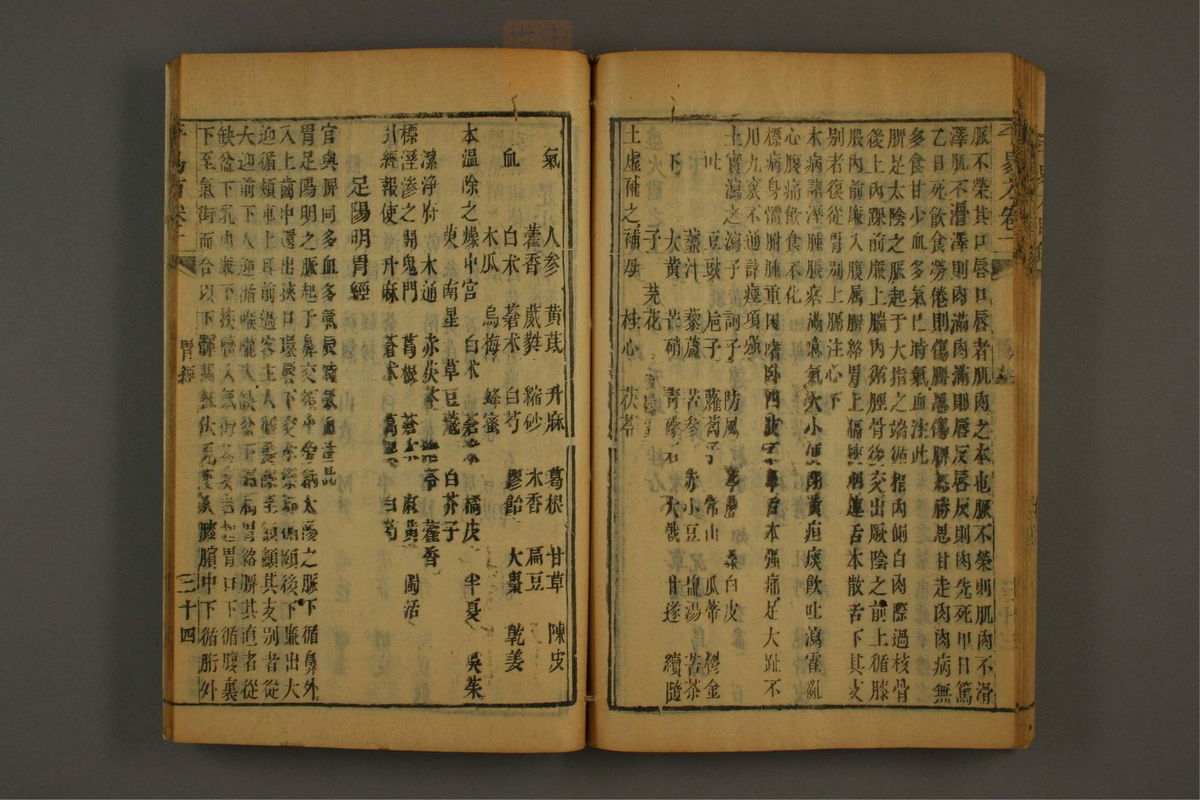 脈不榮其口唇口唇者肌肉之本也脈不榮則肌肉不滑
澤肌不滑澤則肉滿肉滿則唇反唇反則肉先死甲日篤
乙日死飲食勞倦則傷脾愚傷脾為勝思甘走肉肉病無
多食甘少血多氣巳時氣血注此
脾足太陰之脈起于大指之端循指內側白肉際過核骨
後上內踝前廉上腨內循脛骨後交出厥陰之前上循膝
股內前廉入腹屬脾絡胃上膈挾咽連舌本散舌下其支
別者復從胃別上膈注心下
本病諸溼腫脹痞滿噫氣大小便閉黃疸痰飲吐瀉霍亂
心腹痛飲食不化
標病身體胕腫重困嗜臥四肢不舉舌本强痛足大趾不
用九竅不通諸痙項强
土實瀉之瀉子訶子 防風 葶藶 桑白皮
吐 豆豉 梔子 蘿蔔子 常山 瓜蒂 鬱金
虀汁 藜蘆 苦參 赤小豆 鹽湯 苦茶
下 大黃 芒硝 青礞石 大戟 甘遂 續隨
子 芫花
土虛補之補母 桂心 茯苓
氣 人參 黃芪 升麻 葛根 甘草 陳皮
藿香 葳蕤 縮砂 木香 扁豆
血 白朮 蒼朮 白芍 膠飴 大棗 乾姜
木瓜 烏梅 蜂蜜
本溫除之燥中宮白朮 蒼朮 橘皮 半夏 吳茱
萸 南星 草豆蔻 白芥子
潔淨府 木通 赤茯苓 藿香
標溼滲之開鬼門 葛根 蒼朮 麻黃 獨活
升經報使 升麻 蒼朮 葛根 白芍
足陽明胃經
官與脾同多血多氣辰時氣血注此
胃足陽明之脈起于鼻交頞中旁納太陽之脈下循鼻外
入上齒中還出挾口環唇下交承漿却循頤後下廉出大
迎循頰車上耳前過客主人循髮際至額顱其支別者從
大迎前下人迎循喉嚨入缺盆下膈屬胃絡脾其直者從
缺盆下乳內廉下挾臍入氣街其支者起胃口下循腹裏
下至氣街而合以下髀關抵伏兔下膝臏中下循䯒外
胃經
三十四